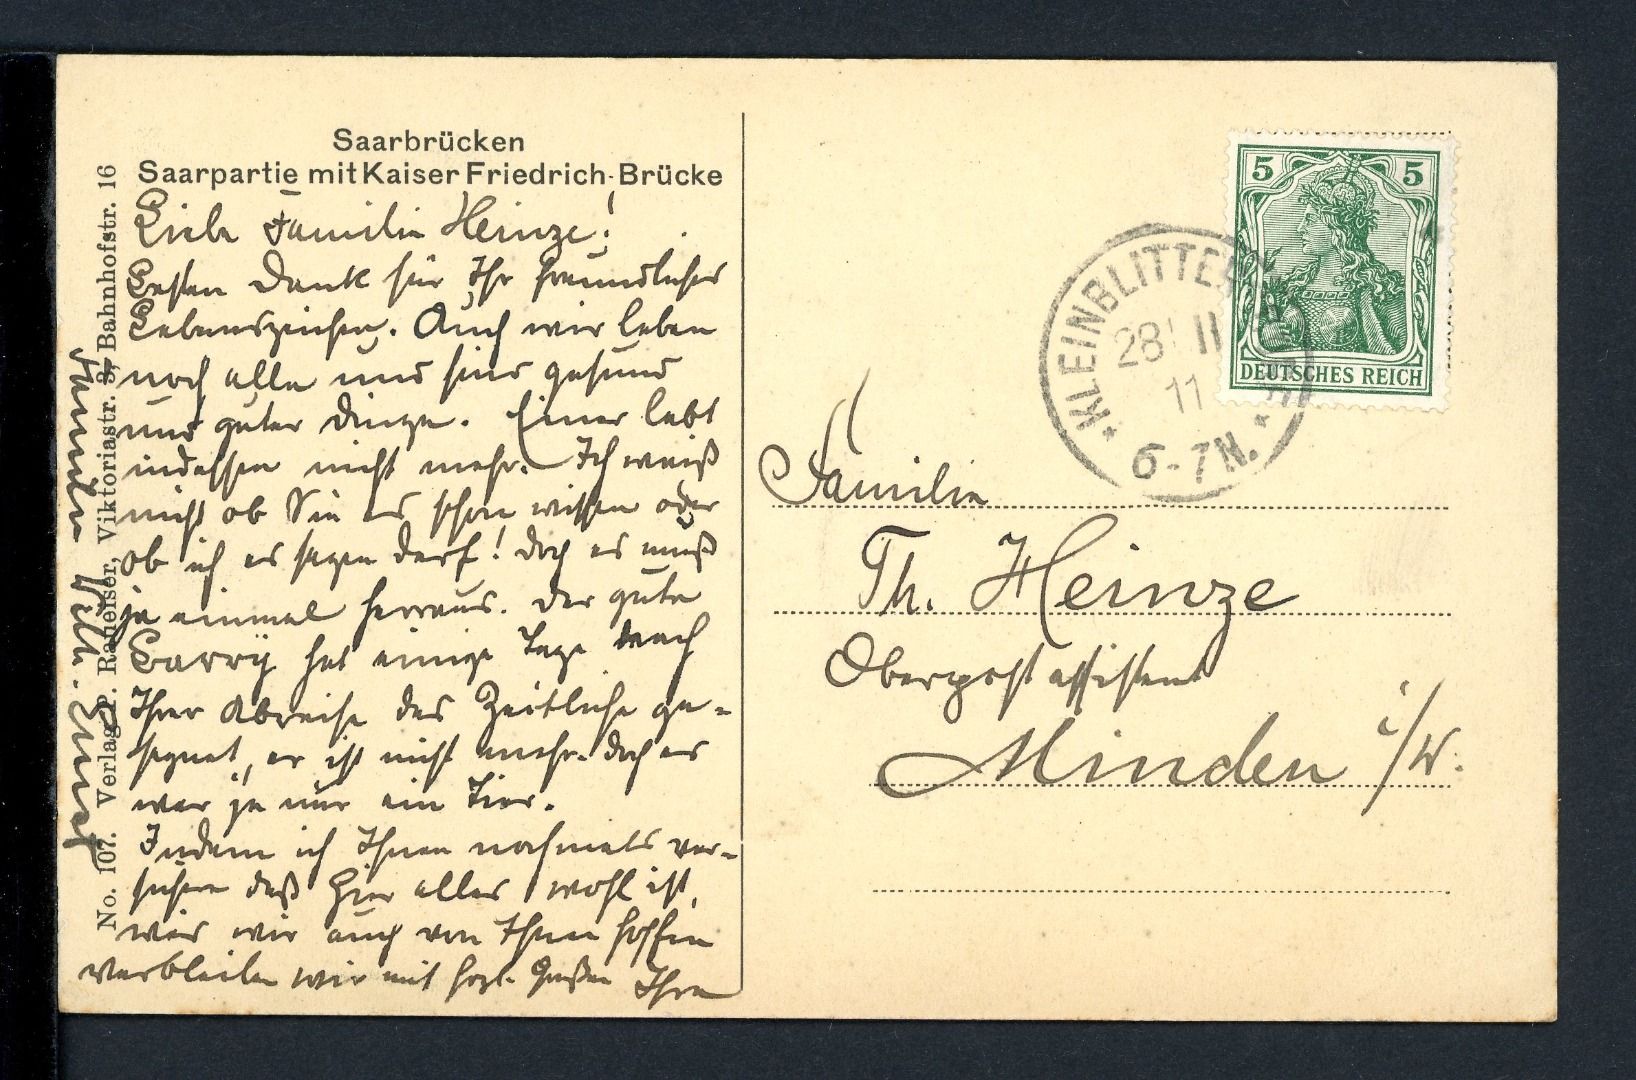 Saarbrücken
Saarpartie mit Kaiser Friedrich-Brücke
Liebe Familie Heinze!
Besten Dank für Ihr freundliches
Lebenszeichen. Auch wir leben
noch alle und sind gesund
und guter Dinge. Einer lebt
indessen nicht mehr. Ich weiß
nicht ob Sie es schon wissen oder
ob ich es sagen darf! doch es muß
ja einmal herraus. Der gute
hat einige Tage nach
Ihrer Abreise das Zeitliche ge=
segnet, er ist nicht mehr. doch es
war ja nur ein Tier.
Indem ich Ihnen nochmals ver=
sichere daß hier alles wohl ist,
was wir auch von Ihnen hoffen
verbleiben wir mit hrzl. Grüßen Ihre
Familie Wilh.
No. 107. Verlag P. Raueiser, Viktoriastr. 3, Bahnhofstr. 16
5 5
DEUTSCHES REICH
KLEINBLITTE
28 11
11
6-7N.
Familie
Th. Heinze
Oberpostassistent
Minden i/W.